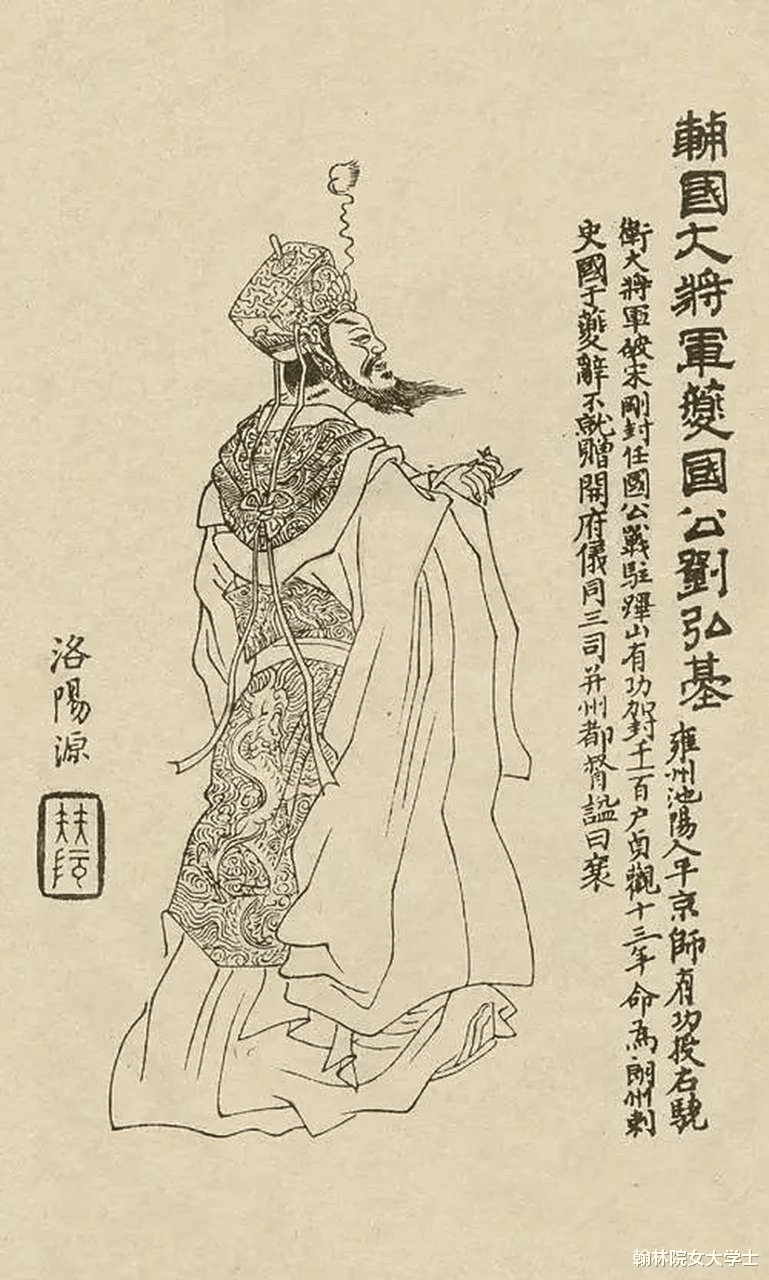 輔國大將軍夔國公劉弘基
雍州池陽人平京師有功授右驍
衛大將軍破宋剛封任國公戰駐蹕山有功加封千一百户貞觀十三年命為朗州刺
史國于夔辭不就贈開府儀同三司并州都督謚曰襄
洛陽源
翰林院女大学士